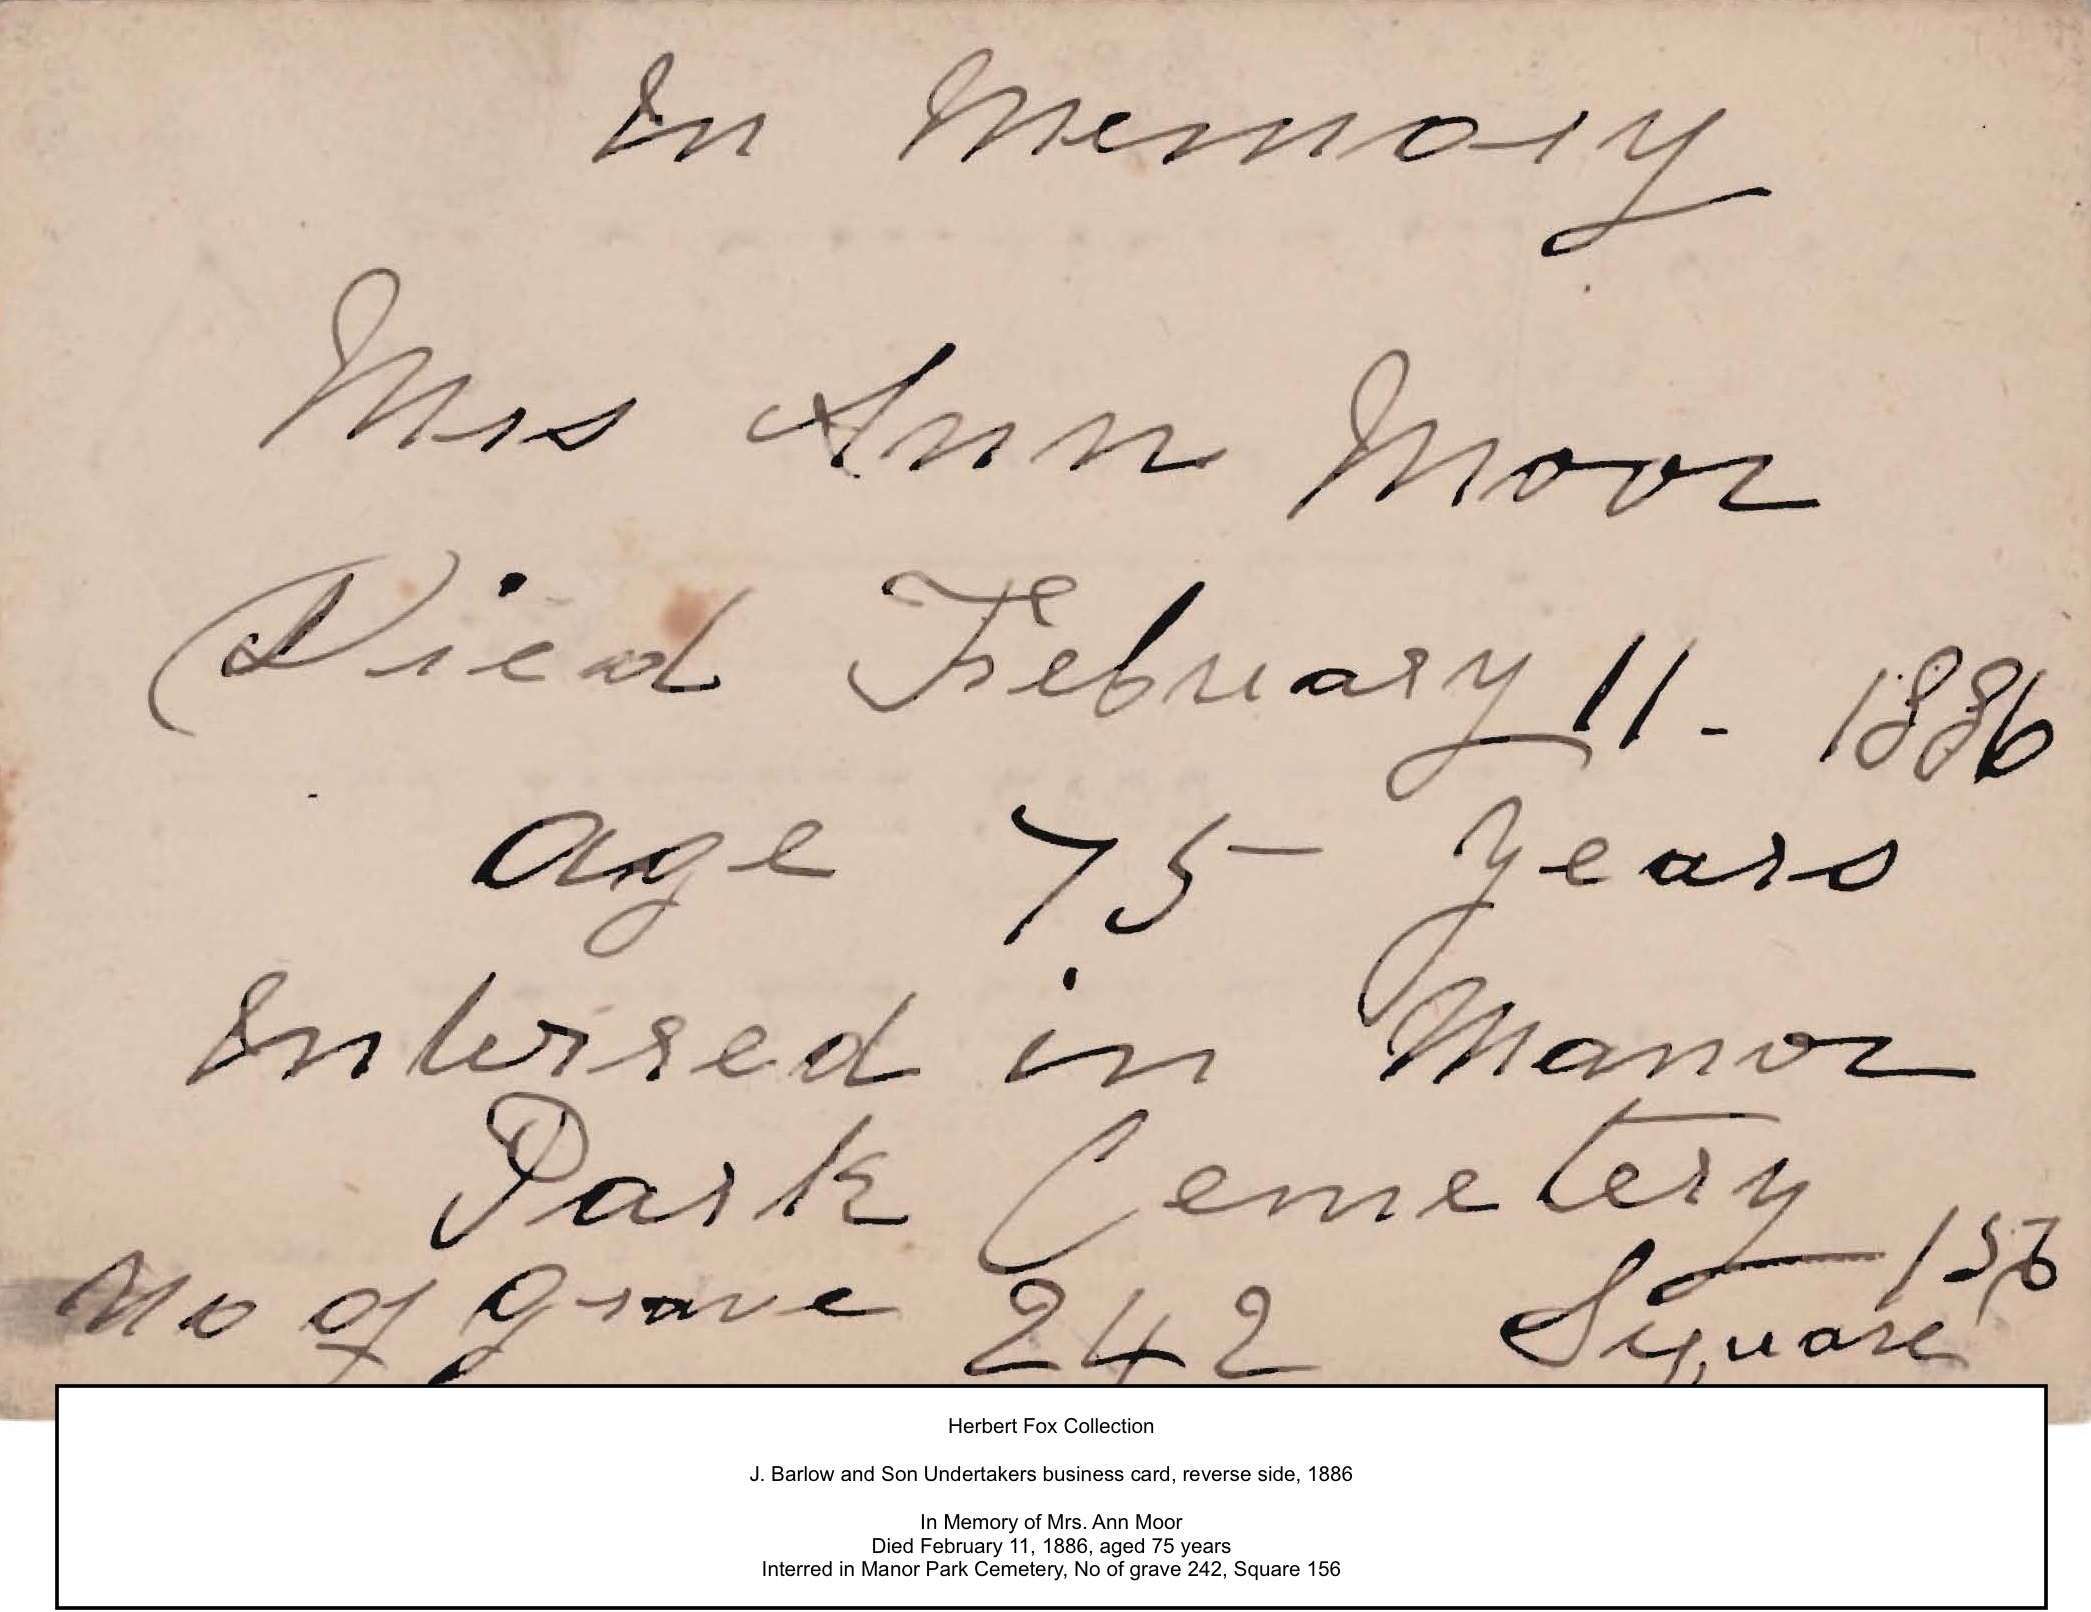 In Memory
Mrs Ann Moor
Died February 11 - 1886
age 75 years
Interred in Manor
Park Cemetery
No of grave 242 Square 156
Herbert Fox Collection
J. Barlow and Son Undertakers business card, reverse side, 1886
In Memory of Mrs. Ann Moor
Died February 11, 1886, aged 75 years
Interred in Manor Park Cemetery, No of grave 242, Square 156